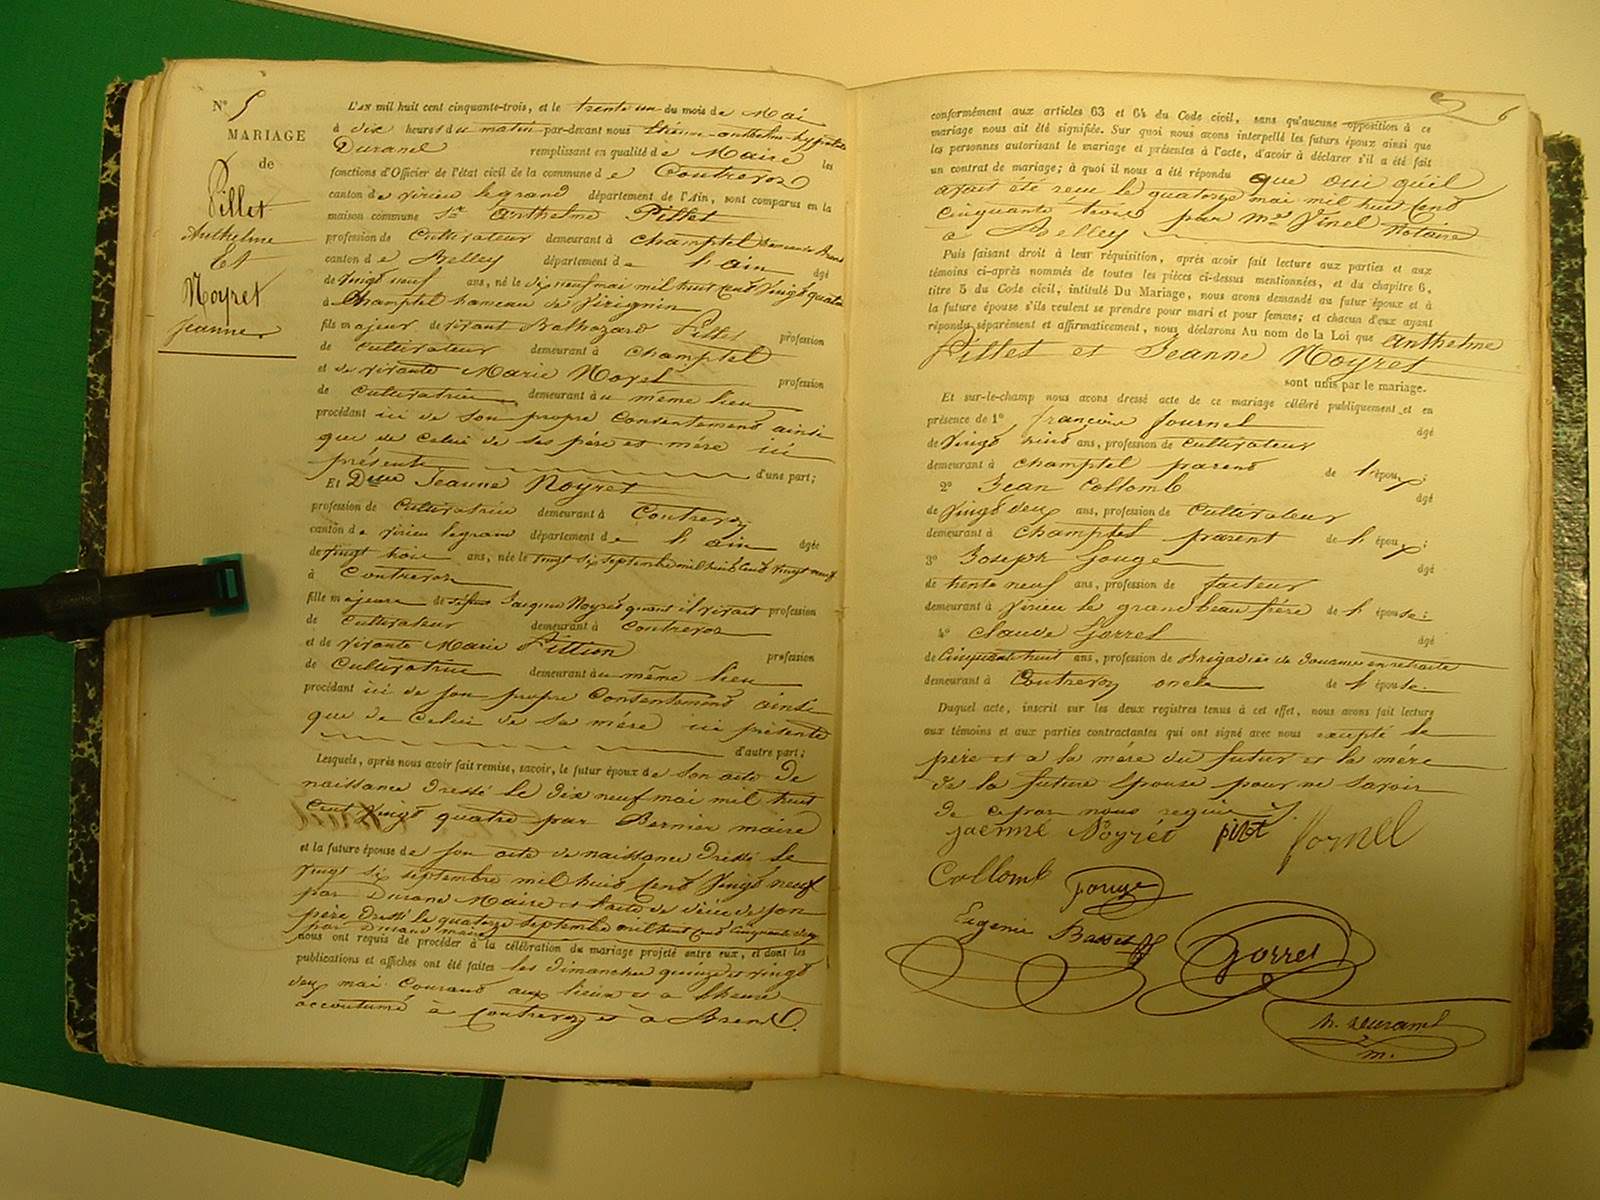 N° 5
MARIAGE
de
Pillet
Anthelme
Et
Noyret
Jeanne
L'AN mil huit cent cinquante-trois, et le trente un du mois de Mai
à dix heures du matin par-devant nous Etienne-Anthelme-hypolite
Durand remplissant en qualité de Maire les
fonctions d'Officier de l'état civil de la commune de Contrevoz
canton de virieu le grand département de l'Ain, sont comparus en la
maison commune Sr Anthelme Pillet
profession de Cultivateur demeurant à champtel hameau de Brens
canton de Belley département de l'ain âgé
de vingt neuf ans, né le dix neuf mai mil huit cent vingt quatre
à Champtel hameau de Virignin
fils majeur de vivant Balthazard Pillet profession
de Cultivateur demeurant à Champtel
et de vivante Marie Morel profession
de Cultivatrice demeurant au même lieu
procédant ici de son propre Consentement ainsi
que de celui de ses père et mère ici
présents d'une part;
Et Dlle Jeanne Noyret
profession de Cultivatrice demeurant à Contrevoz
canton de virieu legrand département de l'ain âgée
de vingt trois ans, née le vingt six septembre mil huit cent vingt neuf
à Contrevoz
fille majeure de défunt Jacques Noyret quant il vivait profession
de Cultivateur demeurant à Contrevoz
et de vivante Marie Fillion profession
de Cultivatrice demeurant au même lieu
procédant ici de son propre Consentement ainsi
que de celui de sa mère ici présente
d'autre part;
Lesquels, après nous avoir fait remise, savoir, le futur époux de son acte de
naissance dressé le dix neuf mai mil huit
cent vingt quatre par Bernier maire
et la future épouse de son acte de naissance dressé le
vingt six septembre mil huit cent vingt neuf
par Durand Maire et l'acte de décès de son
père dressé le quatorze septembre mil huit cent cinquante deux
par Durand maire
nous ont requis de procéder à la célébration du mariage projeté entre eux, et dont les
publications et affiches ont été faites les dimanches quinze et vingt
deux mai Courant aux lieux et a l'heure
accoutumé à Contrevoz et à Brens.
6
conformément aux articles 63 et 64 du Code civil, sans qu'aucune opposition à ce
mariage nous ait été signifiée. Sur quoi nous avons interpellé les futurs époux ainsi que
les personnes autorisant le mariage et présentes à l'acte, d'avoir à déclarer s'il a été fait
un contrat de mariage; à quoi il nous a été répondu que oui qu'il
avait été reçu le quatorze mai mil huit cent
cinquante trois par me Vinel notaire
a Belley
Puis faisant droit à leur réquisition, après avoir fait lecture aux parties et aux
témoins ci-après nommés de toutes les pièces ci-dessus mentionnées, et du chapitre 6,
titre 5 du Code civil, intitulé Du Mariage, nous avons demandé au futur époux et à
la future épouse s'ils veulent se prendre pour mari et pour femme; et chacun d'eux ayant
répondu séparément et affirmativement, nous déclarons Au nom de la Loi que Anthelme
Pillet et Jeanne Noyret
sont unis par le mariage.
Et sur-le-champ nous avons dressé acte de ce mariage célébré publiquement et en
présence de 1° françois fournel âgé
de vingt cinq ans, profession de Cultivateur
demeurant à champtel parent de l'époux;
2° Jean Collomb âgé
de vingt deux ans, profession de Cultivateur
demeurant à champtel parent de l'époux;
3° Joseph Gouge âgé
de trente neuf ans, profession de facteur
demeurant à virieu le grand beau frère de l'épouse;
4° Claude Gorret âgé
de Cinquante huit ans, profession de Brigadier de Douane en retraite
demeurant à Contrevoz oncle de l'épouse.
Duquel acte, inscrit sur les deux registres tenus à cet effet, nous avons fait lecture
aux témoins et aux parties contractantes qui ont signé avec nous excepté le
père et a la mère du futur et la mère
de la future épouse pour ne savoir
de ce par nous requis
jaenne Noyret pilot fornel
Collomb Gouge
Eugenie Basset Gorret
h. Durand
m.